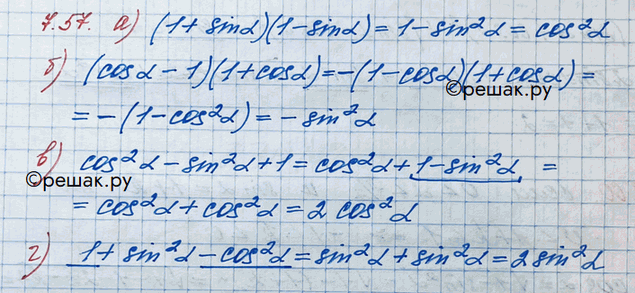 7.57. а) (1 + sinα)(1 - sinα) = 1 - sin²α = cos²α
б) (cosα - 1)(1 + cosα) = -(1 - cosα)(1 + cosα) =
©решак.ру
= -(1 - cos²α) = - sin²α
в) cos²α - sin²α + 1 = cos²α + 1 - sin²α =
©решак.ру
= cos²α + cos²α = 2 cos²α
г) 1 + sin²α - cos²α = sin²α + sin²α = 2 sin²α